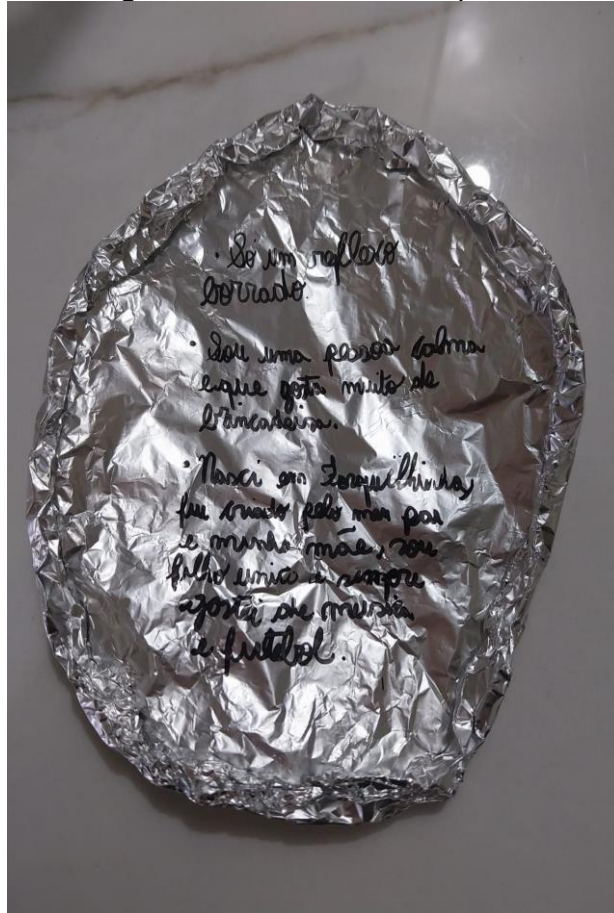 • Só um reflexo
borrado.
• Sou uma pessoa calma
e que gosta muito de
brincadeira.
• Nasci em Forquilhinha,
fui criado pelo meu pai
e minha mãe, sou
filho unico e sempre
gostei de musica
e futebol.